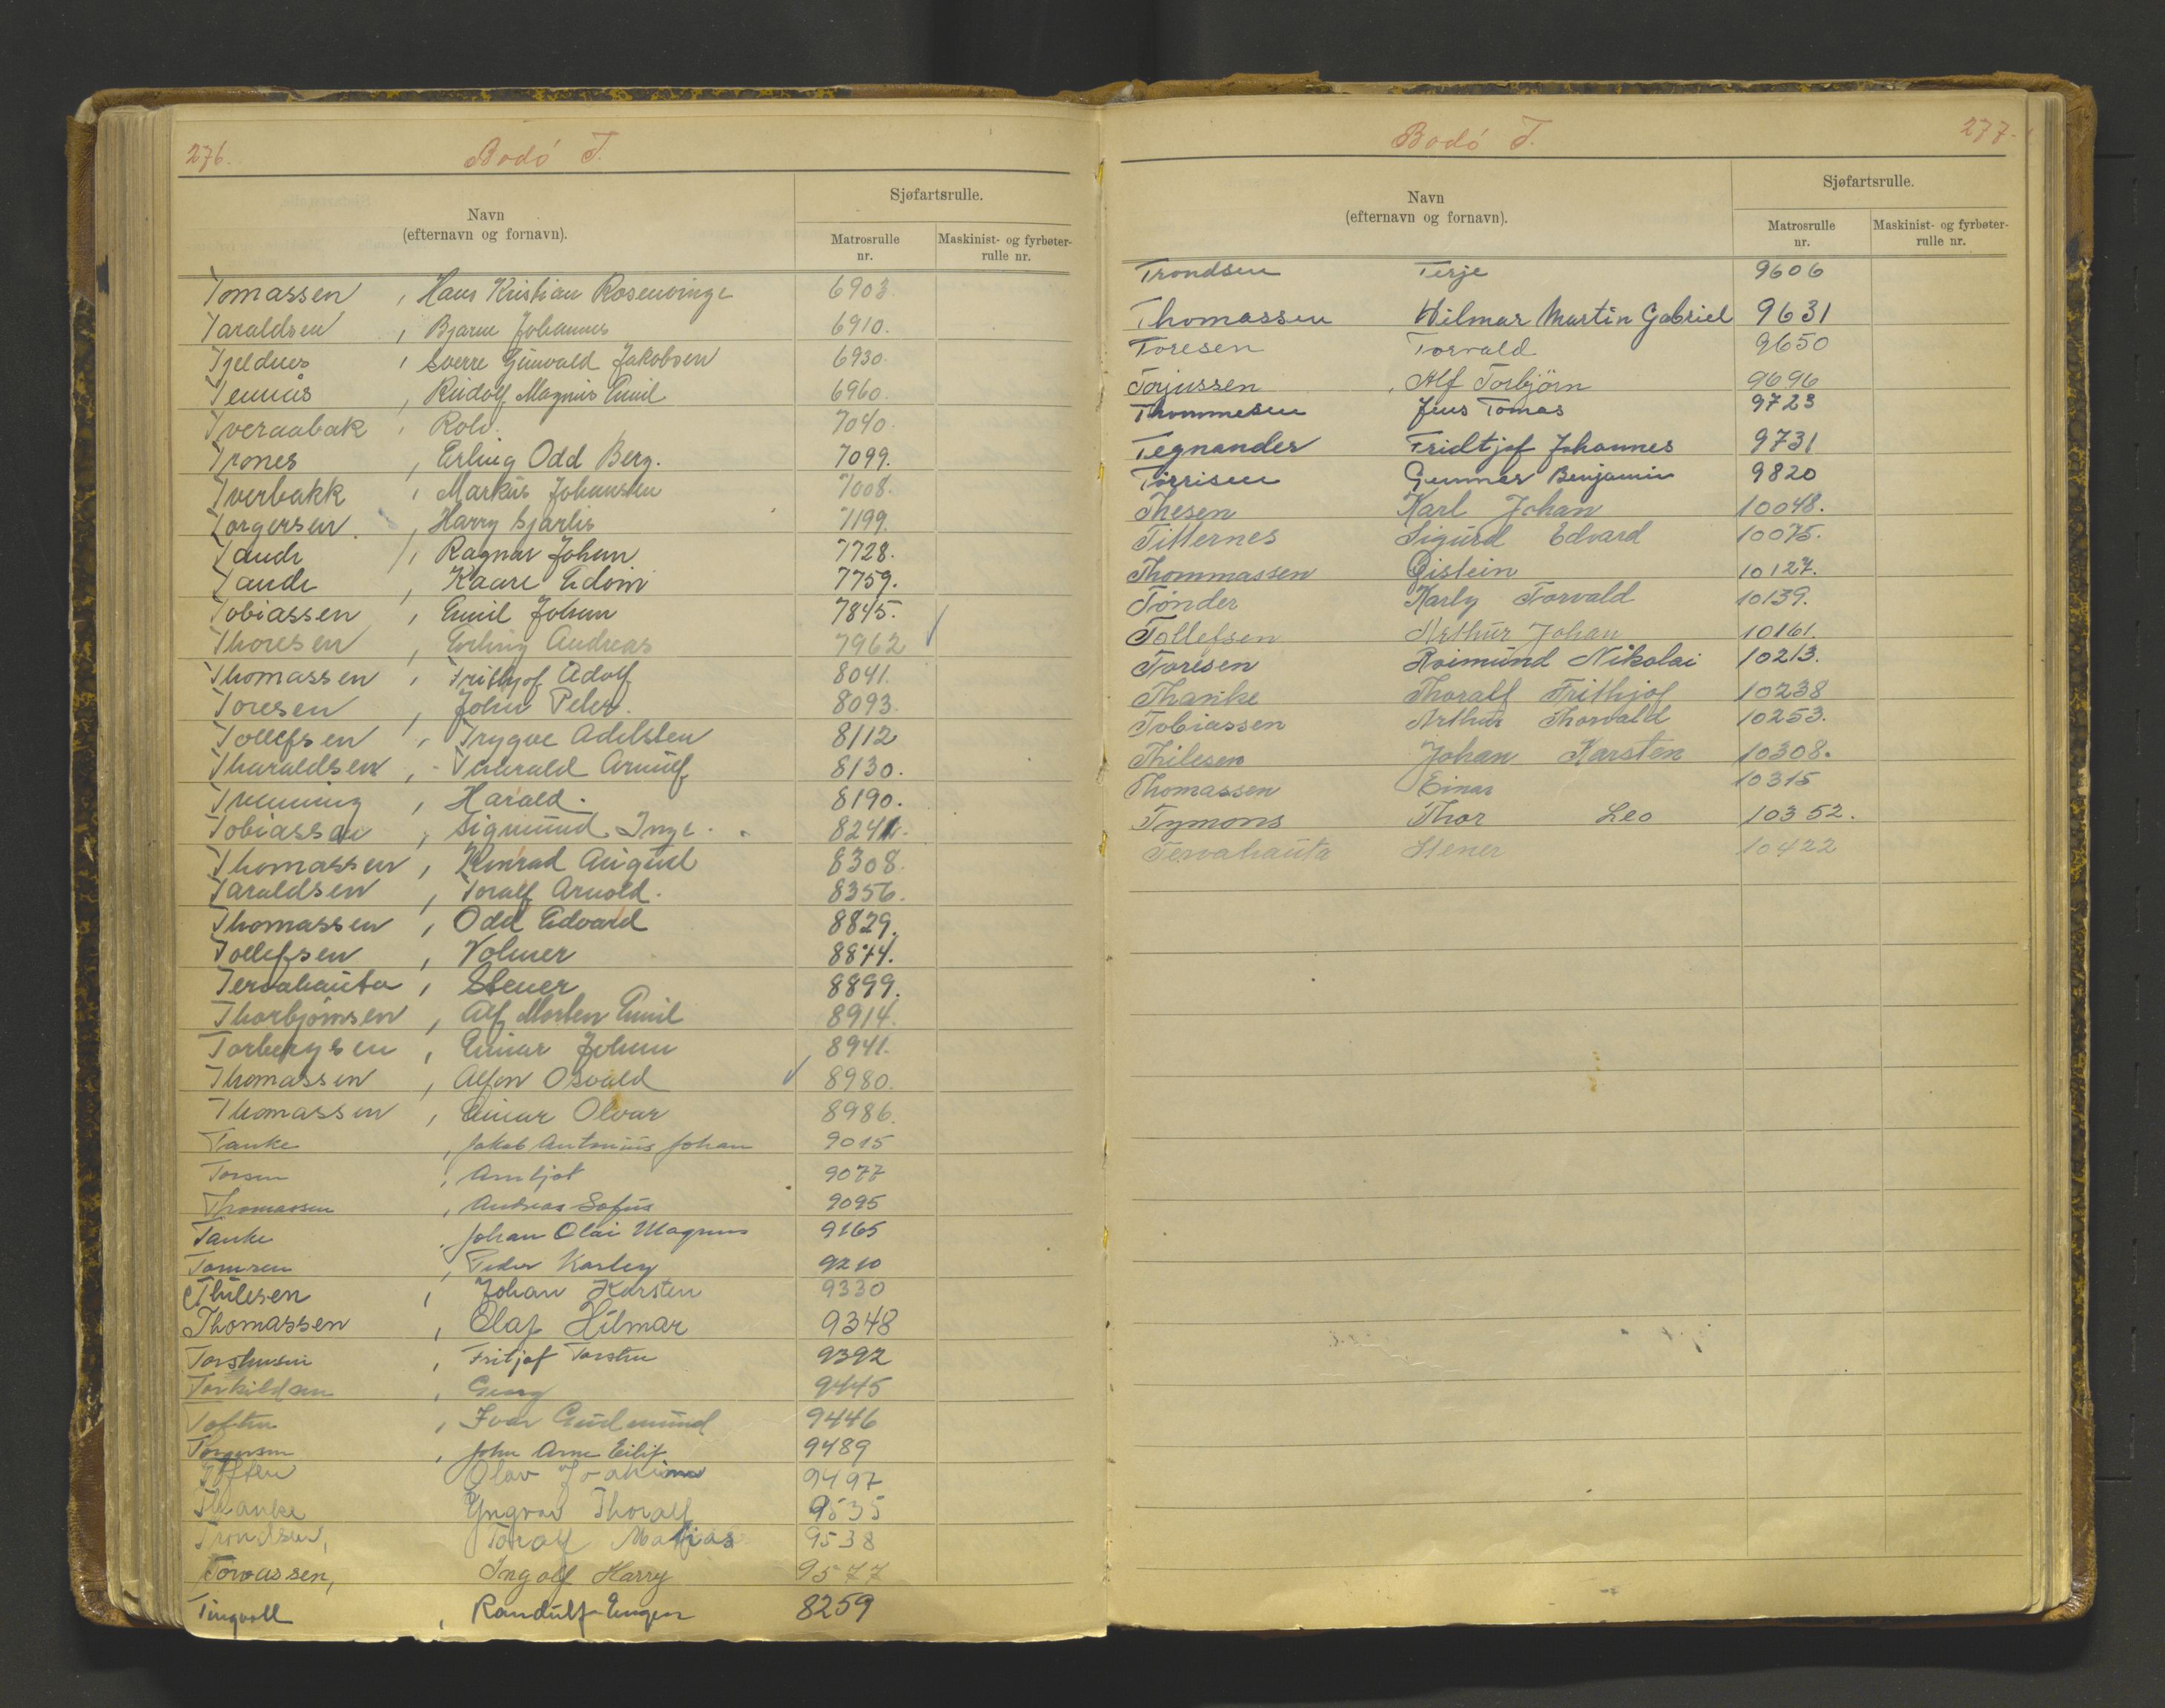 276.
Bodó T.
Navn
(efternavn og fornavn).
Sjøfartsrulle.
Matrosrulle
nr.
Maskinist- og fyrbøter-
rulle nr.
Tomassen , Hans Kristian Rosenvinge 6903
Taraldsen , Bjarne Johannes 6910.
Tjeldnes , Sverre Gunvald Jakobsen 6930.
, Rudolf Magnus Emil 6960.
Tveraabak , Rolv. 7040.
Trones , Erling Odd Berg. 7099.
Tverbakk , Markus Johansen 7008.
Torgersen , Harry Hjarlis 7199.
Tande , Ragnar Johan 7728.
Tande , Kaare Edvin 7759.
Tobiassen , Emil Johan 7845.
Thoresen , Erling Andreas 7962
Thomassen , Frithjof Adolf 8041.
Toresen , John Peter. 8093.
Tollefsen , Trygve Adelsten 8112
Tharaldsen , Tharald Arnulf 8130.
Trenning , Harald. 8190.
Tobiassen , Sigmund Inge. 8241.
Thomassen , Konrad August 8308.
Taraldsen , Toralf Arnold. 8356.
Thomassen , Odd Edvard 8829.
Tollefsen , Volmer 8874.
Tervahauta , Stener 8899.
Thorbjørnsen , Alf Morten Emil 8914.
Torbergsen , Einar Johan 8941.
Thomassen , Alfon Osvald 8980.
Thomassen , Einar Olvar 8986.
Tanke , Jakob Antonius Johan 9015
, Arnljot 9077
Thomassen , Andreas Sofus 9095
Tanke , Johan Olai Magnus 9165
, Peder Karley 9210
Thilesen , Johan Karsten 9330
Thomassen , Olaf Hilmar 9348
, Fritjof Torsten 9392
Torkildsen , Georg 9445
Toften , Ivar Gudmund 9446
Torgersen , John Arne Eilif 9489
Toften Olav Joakim 9497
Thanke Yngvar Thoralf 9535
Trondsen, Toralf Matias 9538
Tovassen, Ingolf Harry 9577
Tingvoll , Randulf Eugen 8259
277.
Bodó T.
Navn
(efternavn og fornavn).
Sjøfartsrulle.
Matrosrulle
nr.
Maskinist- og fyrbøter-
rulle nr.
Trondsen Terje 9606
Thomassen Wilmar Martin Gabriel 9631
Toresen Torvald 9650
Torjussen , Alf Torbjörn 9696
Thommesen Jens Tomas 9723
Tegnander Fridtjof Johannes 9731
Torrisen Gunnar Benjamin 9820
Thesen Karl Johan 10048.
Titternes Sigurd Edvard 10075.
Thommassen Øistein 10127.
Tonder Karly Torvald 10139.
Tollefsen Arthur Johan 10161.
Toresen Roimund Nikolai 10213.
Thanke Thoralf Frithjof 10238
Tobiassen Arthur Thorvald 10253.
Thilesen Johan Karsten 10308.
Thomassen Einar 10315
Tymons Thor Leo 10352.
Tervahauta Stener 10422